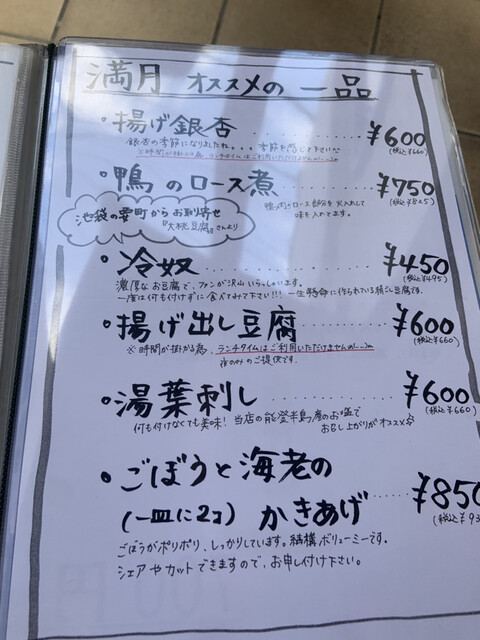 満月 オススメの 一品
・揚げ銀杏 ¥600
銀杏の季節になりましたね。。。季節を感じて下さい (税込¥660)
※時間が掛かる為、ランチタイムはご利用いただけませんm(_ _)m
・鴨のロース煮 ¥750
鴨肉のロース部分を火入れして (税込¥825)
味を入れてます。
池袋の幸町からお取寄せ
『大桃豆腐』さんより
・冷奴 ¥450
濃厚なお豆腐で、ファンが沢山いらっしゃいます。 (税込¥495)
一度は何も付けずに食べてみて下さい!!! 一生懸命に作られている絹ごし豆腐です。
・揚げ出し豆腐 ¥600
※時間が掛かる為、ランチタイムはご利用いただけませんm(_ _)m (税込¥660)
夜のみのご提供です。
・湯葉刺し ¥600
何も付けなくても美味! 当店の能登半島産のお塩で (税込¥660)
お召し上がりがオススメ☆
・ごぼうと海老の
(一皿に2コ) かきあげ ¥850
ごぼうがポリポリ、しっかりしています。結構ボリューミーです。
シェアやカットできますので、お申し付け下さい。